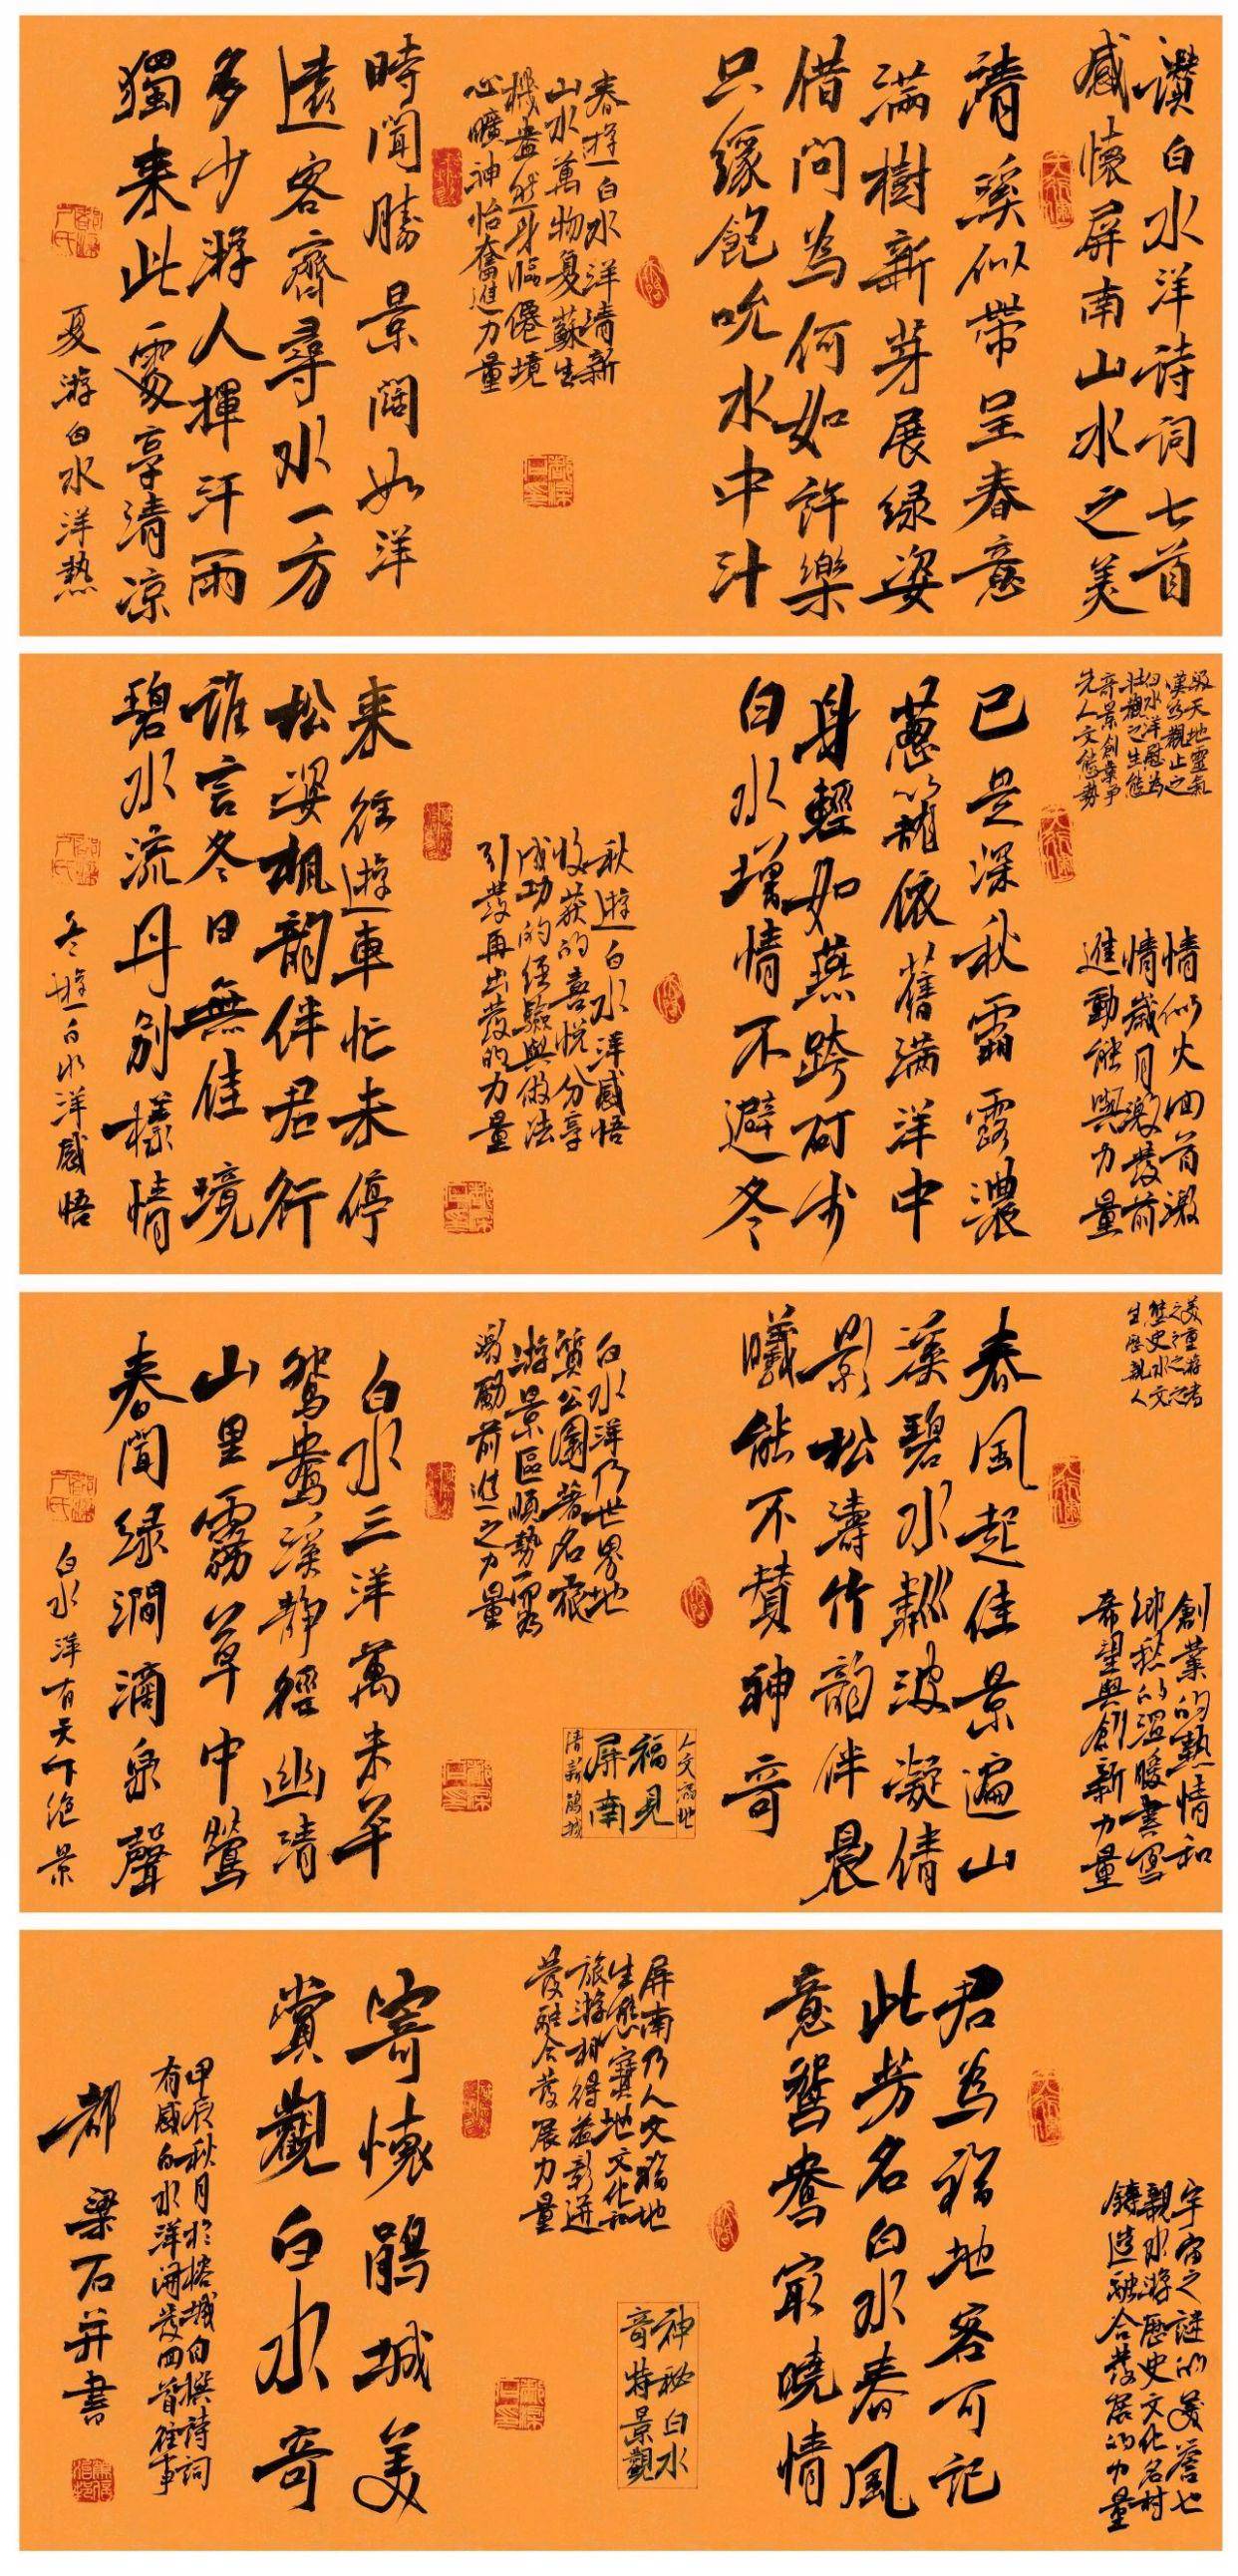 讚白水洋诗词七首
感懷屏南山水之美
清溪似帶呈春意
滿樹新芽展绿姿
借问為何如許樂
只緣飽吮水中汁
春遊白水洋清新
山水萬物复蘇生
機盎然身臨僊境
心曠神怡奮進力量
時聞勝景闊如洋
遠客齊尋水一方
多少游人揮汗雨
獨来此處享清凉
夏游白水洋熱
嘆為觀止之
白水洋慰為
壯觀之生態
奇景創業争
先人文態勢
情似火回首激
情歲月激發前
進動能與力量
已是深秋霜露濃
蔥蘢依舊满洋中
身輕如燕跨矴步
白水增情不避冬
秋遊白水洋感悟
收获的喜悦分享
成功的经驗與做法
引發再出發的力量
来往遊車忙未停
松姿楓韵伴君行
谁言冬日無佳境
碧水流丹别樣情
冬遊白水洋感悟
創業的熱情和
鄉愁的温暖書寫
希望與創新力量
春風起佳景遍山
溪碧水粼波凝倩
影松濤竹韵伴晨
曦能不赞神奇
白水洋乃世界地
質公園著名旅
游景區順勢
激勵前進之力量
人文福地
福見
屏南
白水三洋萬米平
鴛鴦溪静徑幽清
山里霧草中鶯
春聞绿澗滴泉聲
白水洋有天下绝景
宇宙之謎的美譽也
親水游歷史文化名村
鑄造融合發展的力量
君為福地客可記
此芳名白水春風
意鴛鴦最曉情
屏南乃人文福地
生態寶地文化和
旅游相得益彰迸
發融合發展力量
神秘白水
奇特景觀
寄懷鹃城美
賞觀白水奇
甲辰秋月於榕城自撰詩詞
有感白水洋開發四首往事
都梁石并書